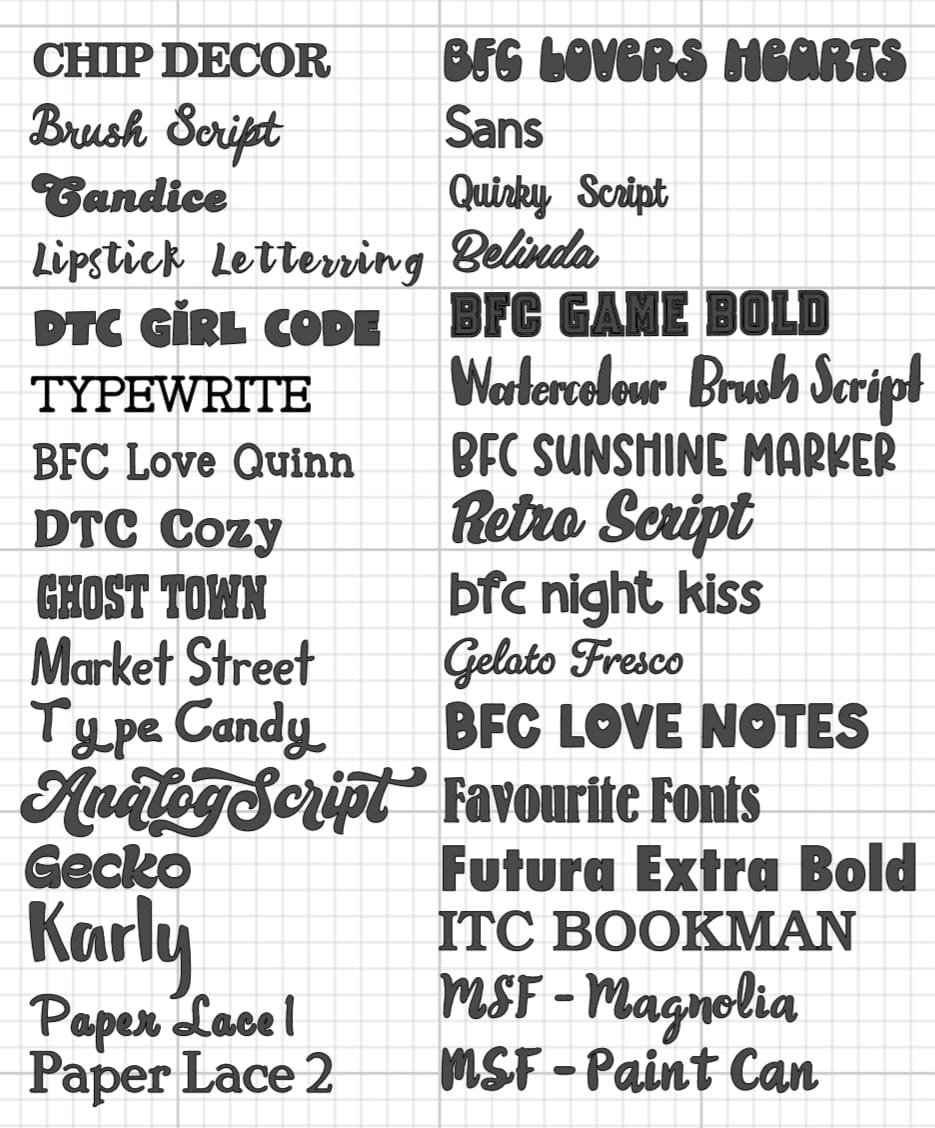 CHIP DECOR
Brush Script
Candice
Lipstick Letterring
DTC GiRL CODE
TYPEWRITE
BFC Love Quinn
DTC Cozy
GHOST TOWN
Market Street
Type Candy
Analog Script
Gecko
Karly
Paper Lace 1
Paper Lace 2
BFC LOVERS HEARTS
Sans
Quirky Script
Belinda
BFC GAME BOLD
Watercolour Brush Script
BFC SUNSHINE MARKER
Retro Script
bfc night kiss
Gelato Fresco
BFC LOVE NOTES
Favourite Fonts
Futura Extra Bold
ITC BOOKMAN
MSF - Magnolia
MSF - Paint Can